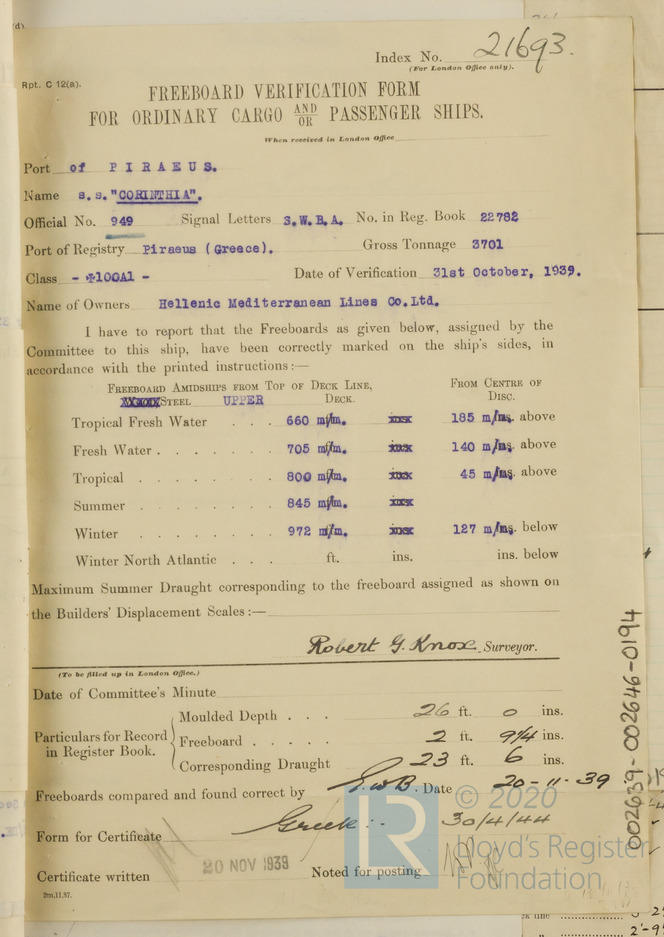 Index No. 21693.
(For London Office only).
Rpt. C 12(a).
FREEBOARD VERIFICATION FORM
FOR ORDINARY CARGO AND/OR PASSENGER SHIPS.
When received in London Office
Port of PIRAEUS.
Name s.s."CORINTHIA".
Official No. 949 Signal Letters S.W.B.A. No. in Reg. Book 22782
Port of Registry Piraeus (Greece). Gross Tonnage 3701
Class - ✠100A1 - Date of Verification 31st October, 1939.
Name of Owners Hellenic Mediterranean Lines Co.Ltd.
I have to report that the Freeboards as given below, assigned by the
Committee to this ship, have been correctly marked on the ship's sides, in
accordance with the printed instructions:—
FREEBOARD AMIDSHIPS FROM TOP OF DECK LINE, FROM CENTRE OF
STEEL UPPER DECK. DISC.
Tropical Fresh Water . . . 660 m/m. 185 m/m. above
Fresh Water . . . . . . . 705 m/m. 140 m/m. above
Tropical . . . . . . . . 800 m/m. 45 m/m. above
Summer . . . . . . . . 845 m/m.
Winter . . . . . . . . 972 m/m. 127 m/m. below
Winter North Atlantic . . . ft. ins. ins. below
Maximum Summer Draught corresponding to the freeboard assigned as shown on
the Builders' Displacement Scales :—
Robert G. Knox. Surveyor.
(To be filled up in London Office.)
Date of Committee's Minute
Particulars for Record in Register Book.
Moulded Depth . . . 26 ft. 0 ins.
Freeboard . . . . . 2 ft. 9¼ ins.
Corresponding Draught 23 ft. 6 ins.
Freeboards compared and found correct by Date 20-11-39
Form for Certificate Greek:- 30/4/44
Certificate written 20 NOV 1939 Noted for posting
2m,11,37.
002639-002646-0194
LR
© 2020
Lloyd's Register
Foundation